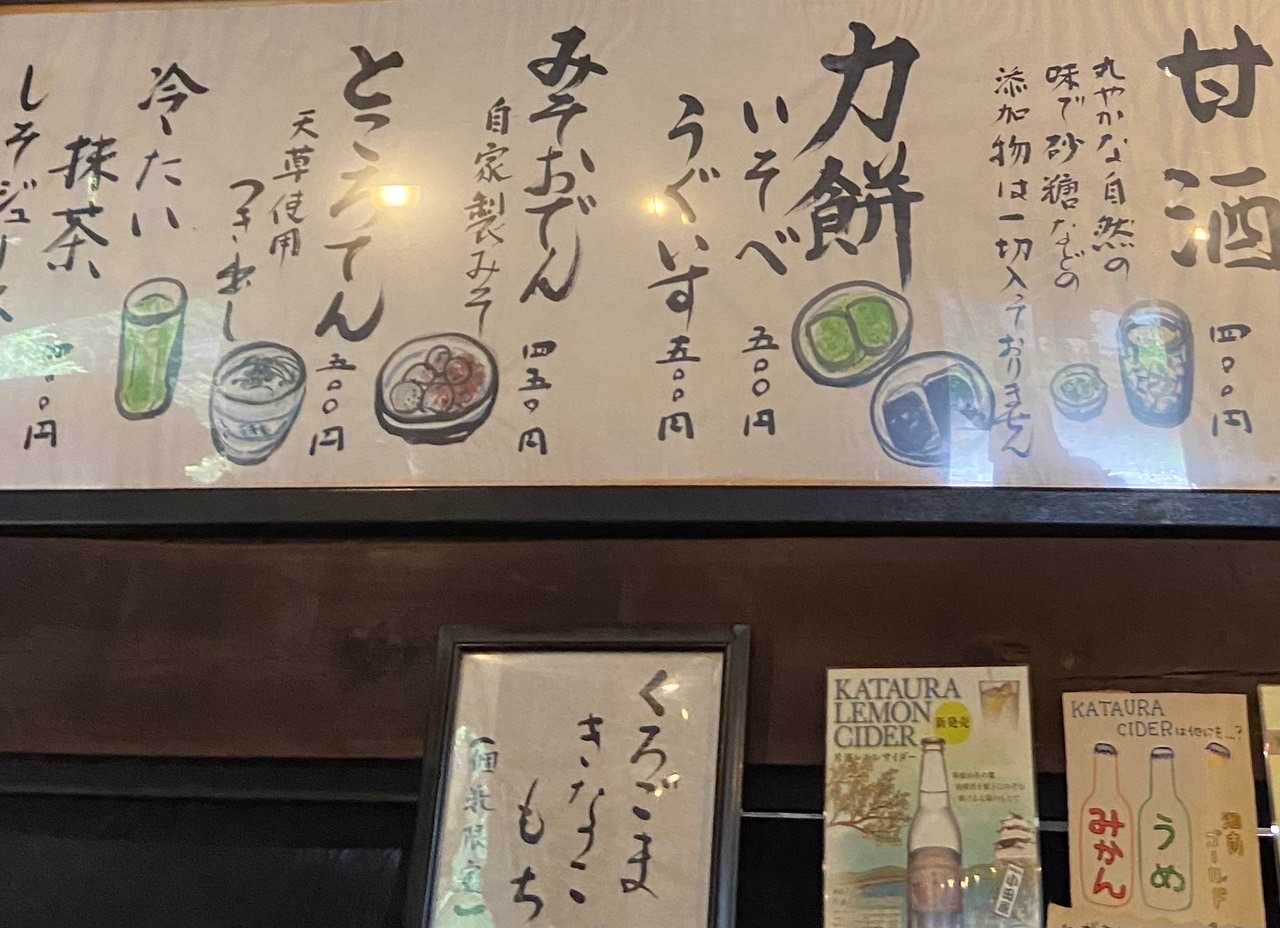 甘酒
四〇〇円
丸やかな自然の
味で砂糖などの
添加物は一切入っておりません
力餅
いそべ
五〇〇円
うぐいす
五〇〇円
みそおでん
四五〇円
自家製みそ
ところてん
五〇〇円
天草使用
つき出し
冷たい
抹茶
しそジュース
円
くろごま
きなこ
もち
KATAURA
LEMON
CIDER
新発売
片浦レモンサイダー
小田原
KATAURA
CIDERは他にも…?
みかん
うめ
湘南
ゴールド